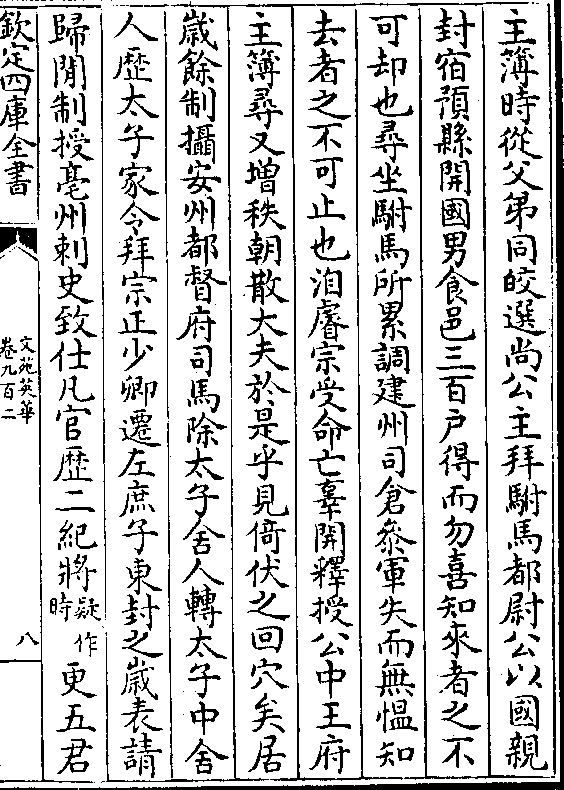 主簿時從父弟同皎選尚公主拜駙馬都尉公以國親
封宿預縣開國男食邑三百户得而勿喜知來者之不
可却也尋坐駙馬所累調建州司倉叅軍失而無愠知
去者之不可止也洎睿宗受命亡辜開釋授公中王府
主簿尋又增秩朝散大夫於是乎見倚伏之回穴矣居
嵗餘制攝安州都督府司馬除太子舍人轉太子中舍
人歴太子家令拜宗正少卿遷左庶子東封之嵗表請
歸閒制授亳州刺史致仕凡官歴二紀將疑作時更五君
欽定四庫全書
文苑英華
卷九百二
八